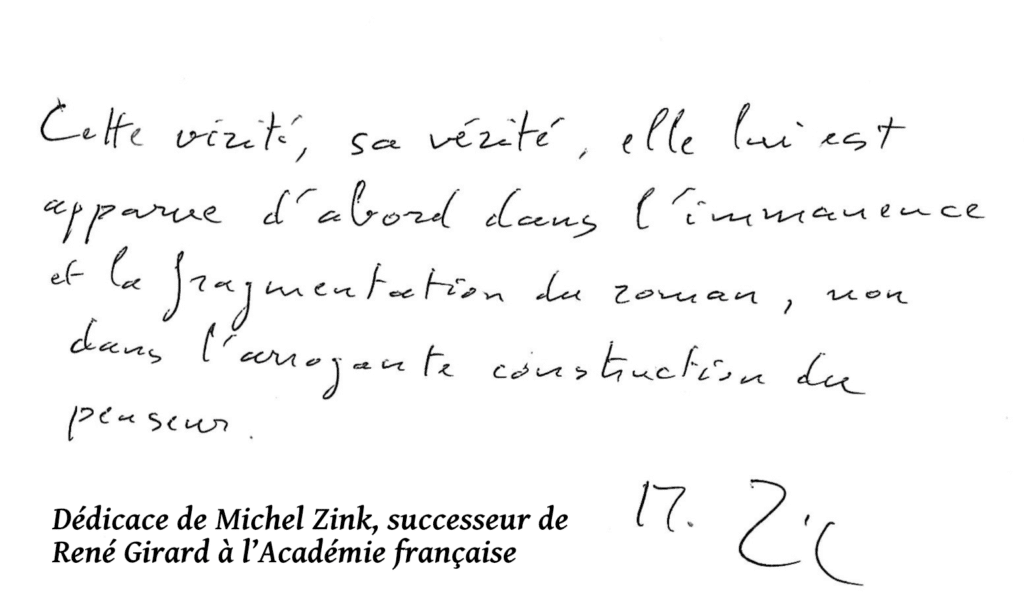 Cette vérité, sa vérité, elle lui est
apparue d'abord dans l'immanence
et la fragmentation du roman, non
dans l'arrogante construction du
penseur.
M. Zink
Dédicace de Michel Zink, successeur de
René Girard à l'Académie française